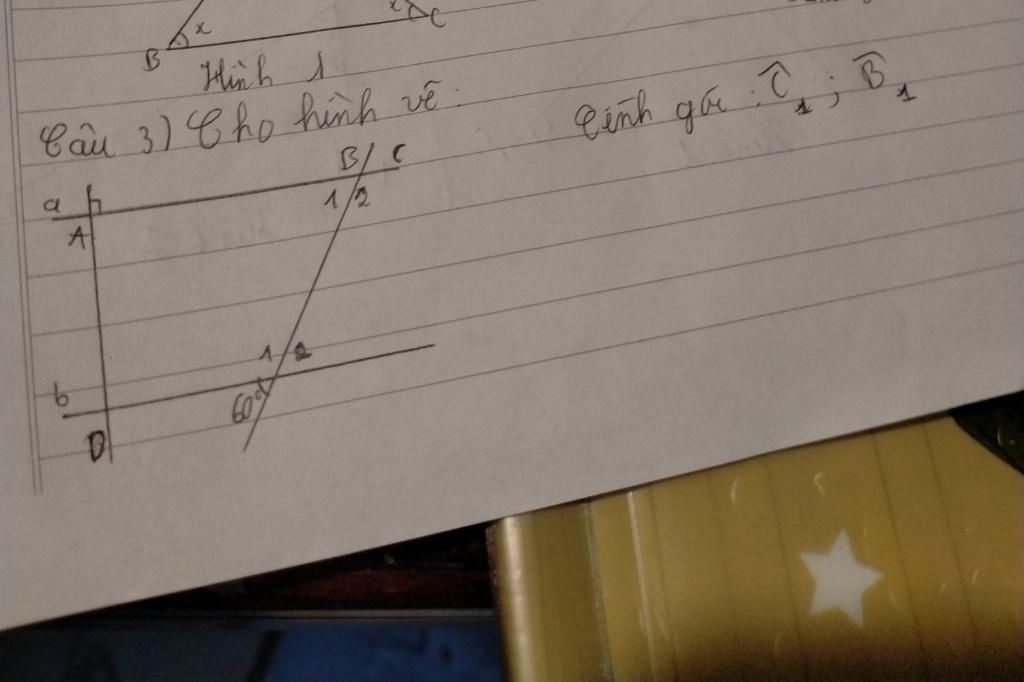 x
x
B
C
Hình 1
Câu 3) Cho hình vẽ:
Tính góc: Ĉ₁; B̂₁
B C
a
1 2
A
1 2
b
60°
D